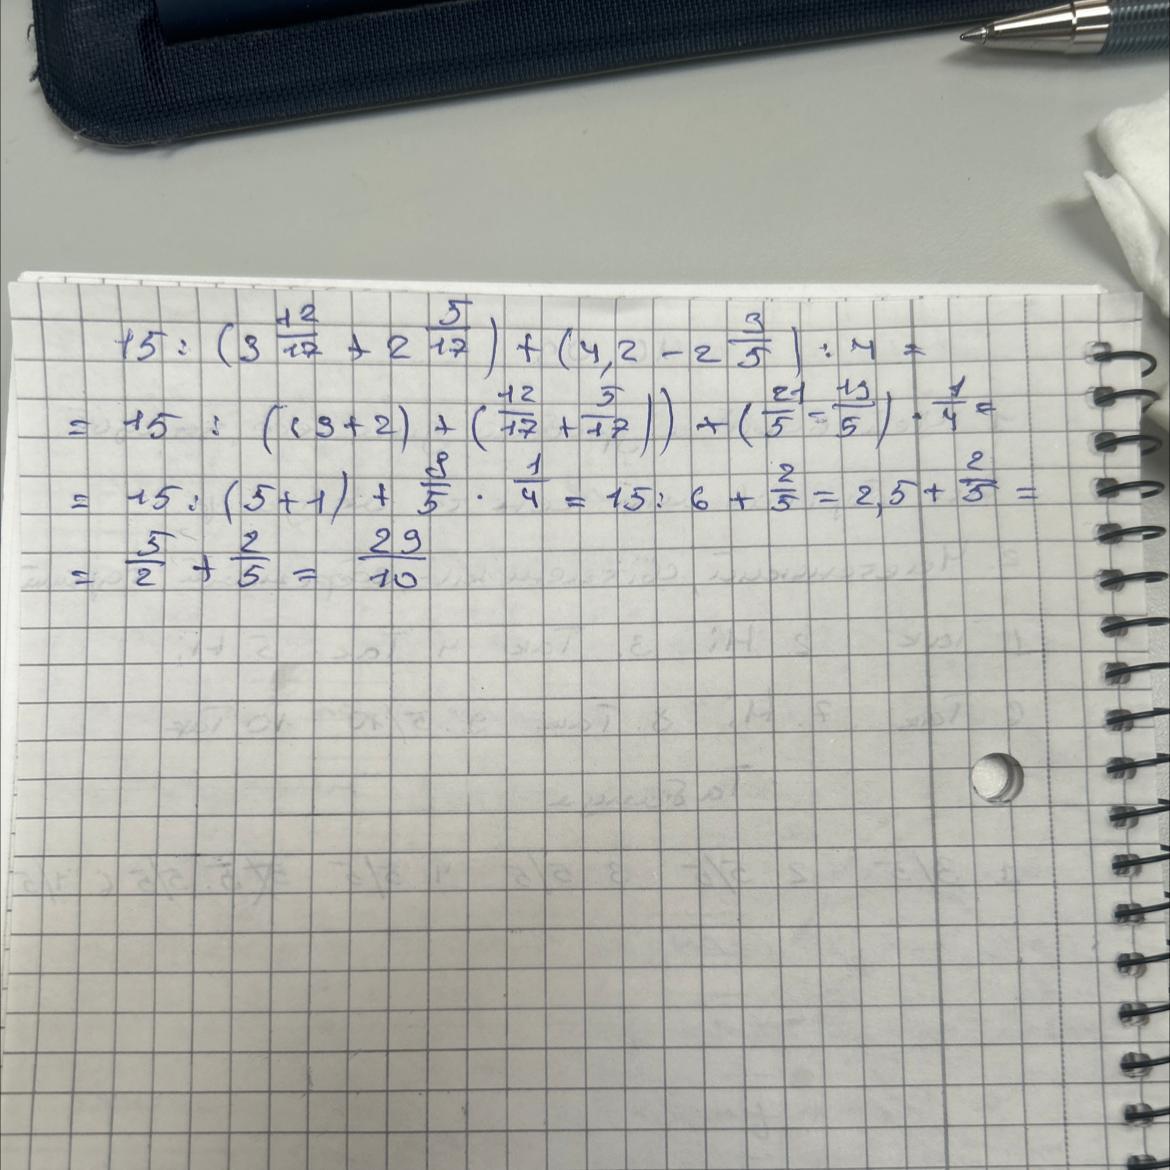 15 : (3 12/17 + 2 5/17) + (4,2 - 2 3/5) : 4 =
= 15 : ((3+2) + (12/17 + 5/17)) + (21/5 - 13/5) · 1/4 =
= 15 : (5+1) + 8/5 · 1/4 = 15 : 6 + 2/5 = 2,5 + 2/5 =
= 5/2 + 2/5 = 29/10